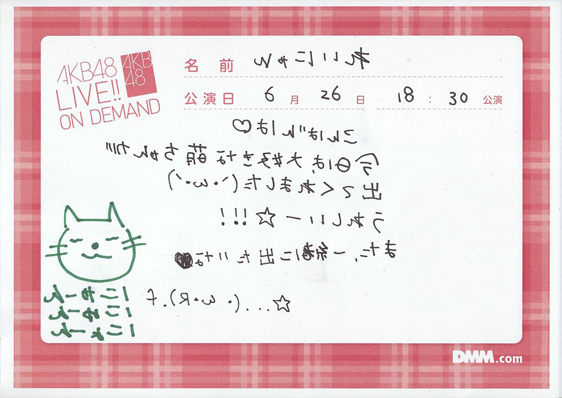 AKB48
LIVE!!
ON DEMAND
AKB
48
名前 れいにゃん
公演日 6月26日 18:30 公演
こんばんは♡
今日は、大好きな萌ちゃんが
出てくれました(`・ω・´)
うれしいー☆!!!
また、一緒に出たいな♥
にゃーん
にゅーん
にょーん
DMM.com